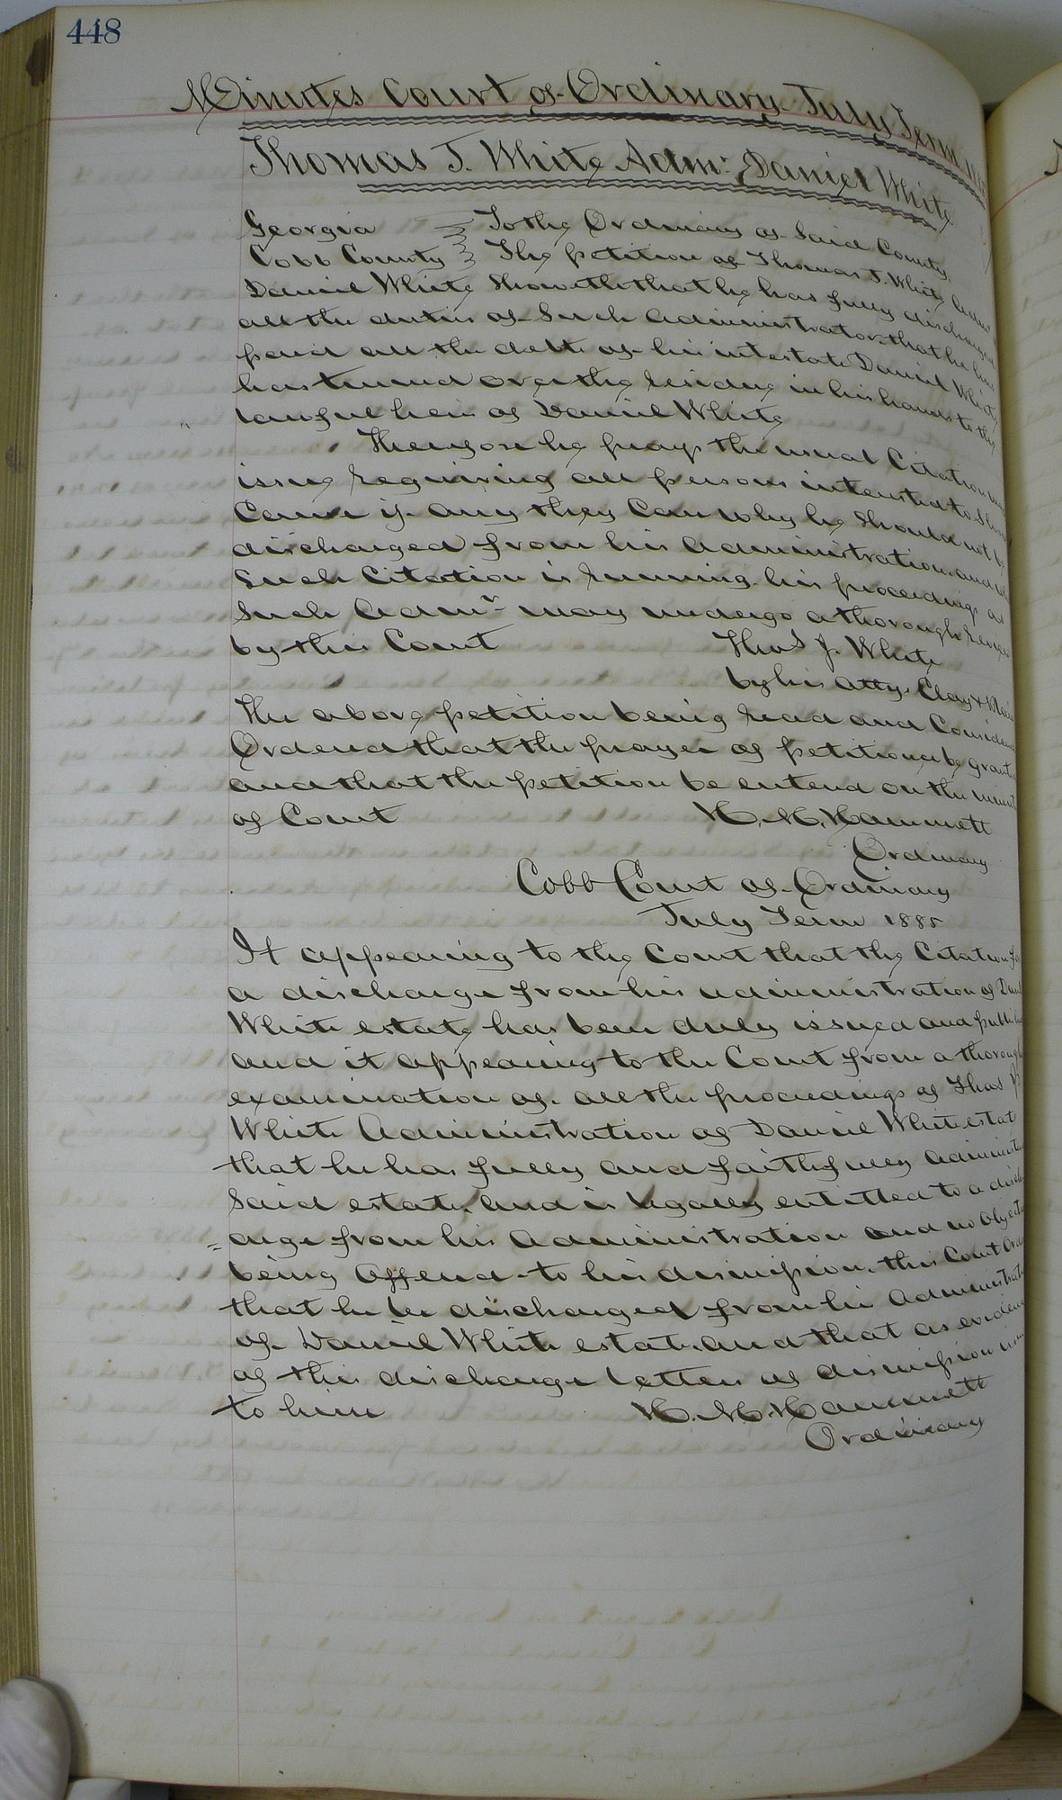 448
Minutes Court of Ordinary July Term
Thomas J. White Adm: Daniel White
Georgia To the Ordinary of Said County
Cobb County The petition of Thomas J. White
Daniel White Showeth that he has fully discharged
all the duties of Such administrator that he has
paid all the debts of his intestate Daniel White
has turned over the residue in his hands to the
lawful heirs of Daniel White
Therefore he prays the usual Citation may
issue requiring all persons intersted to Show
Cause if any they Can why he Should not be
discharged from his Administration and
Such Citation is running his proceedings as
Such Admr may undergo a thorough
by this Court Thos J. White
by his attys Clay &
The above petition being read and Considered
Ordered that the prayer of petitioner be granted
and that the petition be entered on the minutes
of Court H. M. Hammett
Ordinary
Cobb Court of Ordinary
July Term 1885
It appearing to the Court that the Citation for
a discharge from his administration of
White estate has been duly issued and published
and it appearing to the Court from a thorough
examination of all the proceedings of Thos
White Administration of Daniel White estate
that he has fully and faithfully
Said estate and is legally entitled to a disch
= arge from his Administration and no
being offered to his dismission, this Court
that he be discharged from his
of Daniel White estate and that as evidence
of this discharge letters of dismission
to him H. M. Hammett
Ordinary